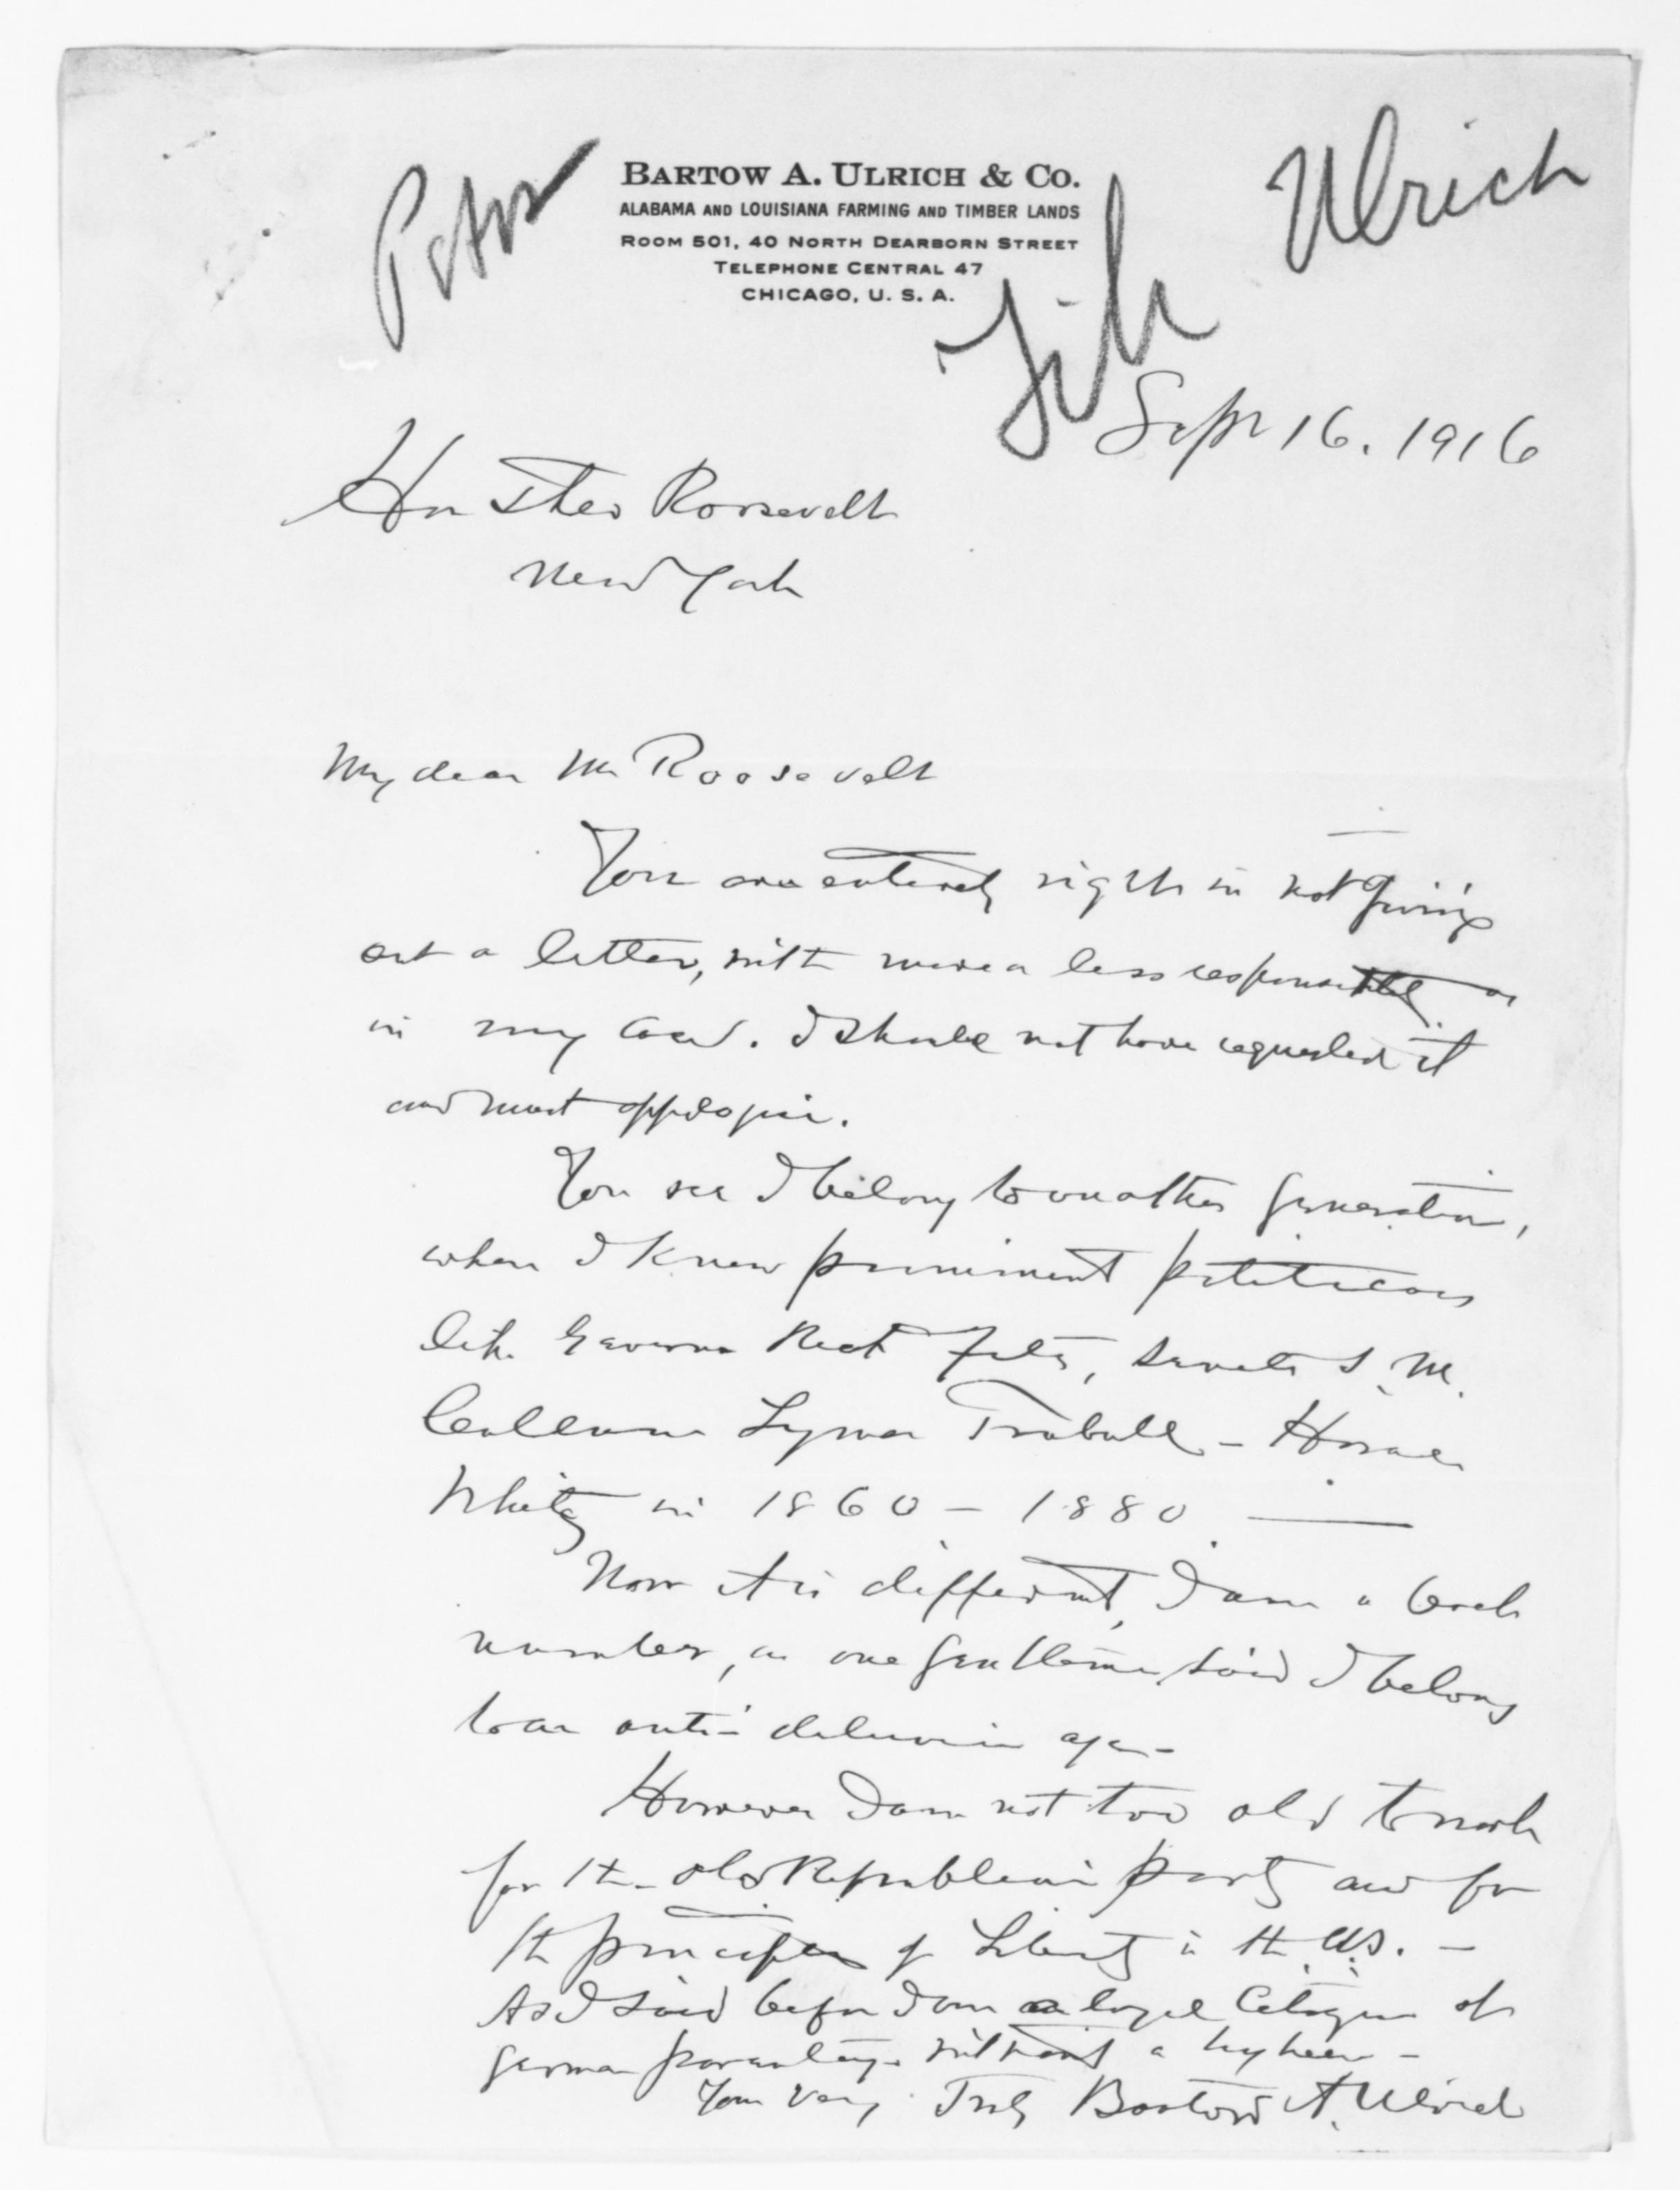 BARTOW A. ULRICH & CO.
ALABAMA AND LOUISIANA FARMING AND TIMBER LANDS
ROOM 501, 40 NORTH DEARBORN STREET
TELEPHONE CENTRAL 47
CHICAGO, U. S. A.
Ulrich
File
Sept 16. 1916
Hon Theo Roosevelt
New York
My dear Mr Roosevelt
You are entirely right in not giving
out a letter, with more or less responsibility as
in my case. I should not have requested it
and must appologise.
You see I belong to another generation,
when I knew prominent politicians
like Governor Rich Yates, Senator S. M.
Cullum Lyman Trumbull - Horace
White in 1860 - 1880.
Now it is different, I am a back
number, as one gentleman said I belong
to an anti-deluvian age -
However I am not too old to work
for the old Republican party and for
the principles of Liberty in the U.S. -
As I said before I am a loyal Citizen of
German parentage without a hyphen -
Your Very Truly Bartow A. Ulrich